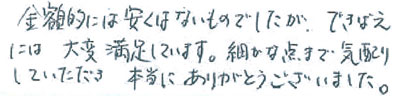 金額的には安くはないものでしたが、できばえ
には 大変満足しています。細かな点まで気配り
していただき 本当にありがとうございました。